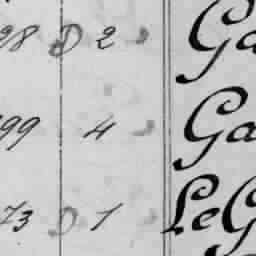 28 D 2 Ga
99 4 Ga
73 D 1 LeG